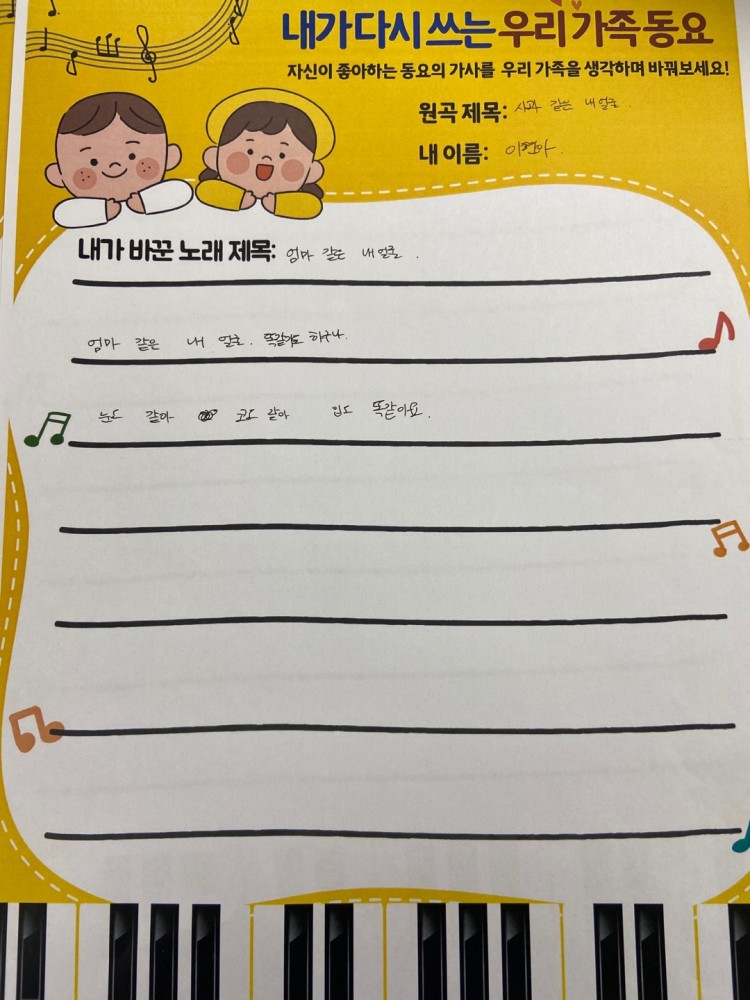 내가 다시 쓰는 우리 가족 동요
자신이 좋아하는 동요의 가사를 우리 가족을 생각하며 바꿔보세요!
원곡 제목: 사과 같은 내 얼굴.
내 이름: 이현아.
내가 바꾼 노래 제목: 엄마 같은 내 얼굴.
엄마 같은 내 얼굴. 똑같기도 하구나.
눈도 같아 코도 같아 입도 똑같아요.